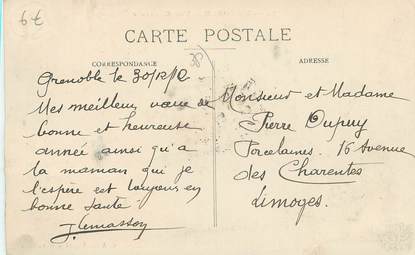 6€
CARTE POSTALE
CORRESPONDANCE
ADRESSE
Grenoble le 30/12/12
Mes meilleurs vœux de
bonne et heureuse
année ainsi qu'a
ta maman qui je
l'espère est toujours en
bonne santé
J. Lemasson
Monsieur et Madame
Pierre Dupuy
Porcelaines. 16 Avenue
des Charentes
Limoges.